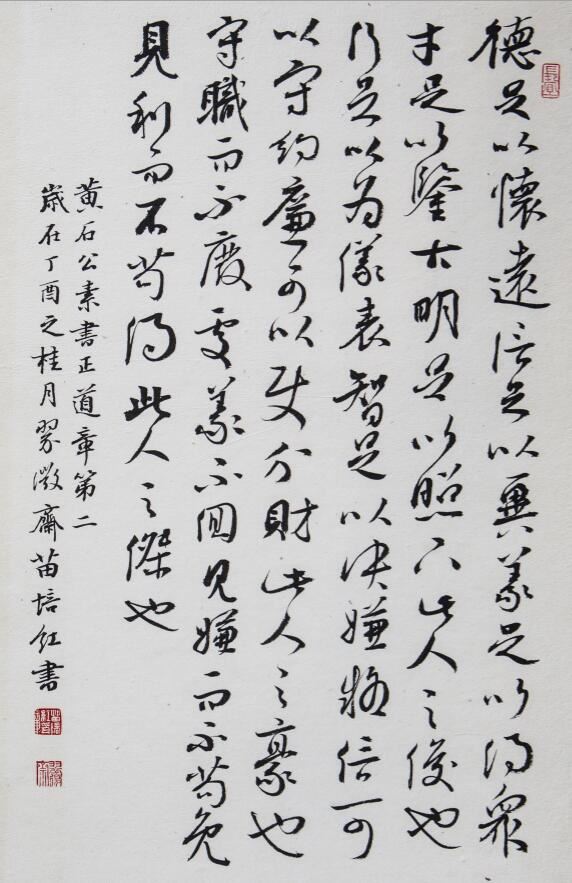 德足以懷遠信足以異義足以得衆
才足以鑒古明足以照下此人之俊也
行足以為儀表智足以決嫌疑信可
以守約廉可以使分財此人之豪也
守職而不廢處義不回見嫌而不苟免
見利而不苟得此人之傑也
黃石公素書正道章第二
歲在丁酉之桂月翠微齋苗培紅書